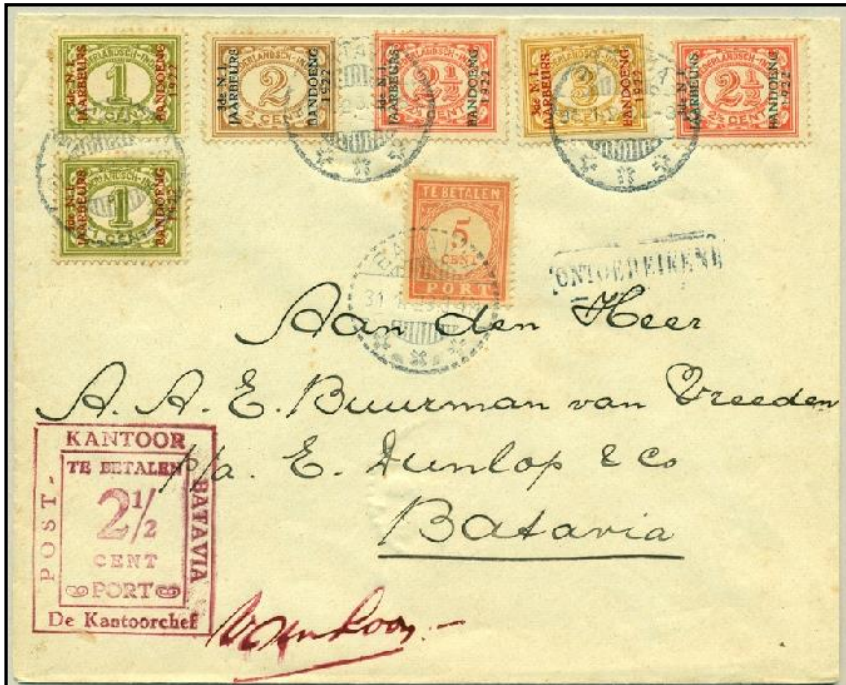 NEDERLANDSCH-INDIË
3de N. I. JAARBEURS
BANDOENG 1922
1
1 CENT
3de N. I. JAARBEURS
BANDOENG 1922
2
2 CENT
3de N. I. JAARBEURS
BANDOENG 1922
2½
2½ CENT
3de N. I. JAARBEURS
BANDOENG 1922
5
CENT
3de N. I. JAARBEURS
BANDOENG 1922
2½
2½ CENT
3de N. I. JAARBEURS
BANDOENG 1922
1
1 CENT
TE BETALEN
5
CENT
PORT
Aan den Heer
A. A. E. Buurman van Vreeden
p/a. E. Dunlop & Co
Batavia
KANTOOR
POST-
BATAVIA
TE BETALEN
2½
CENT
PORT
De Kantoorchef